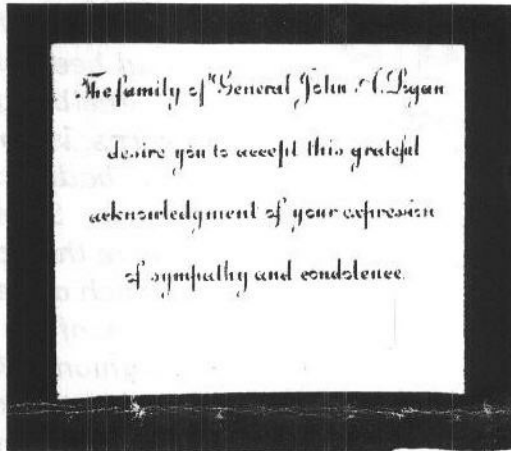 The family of General John A. Logan
desire you to accept this grateful
acknowledgment of your expression
of sympathy and condolence.